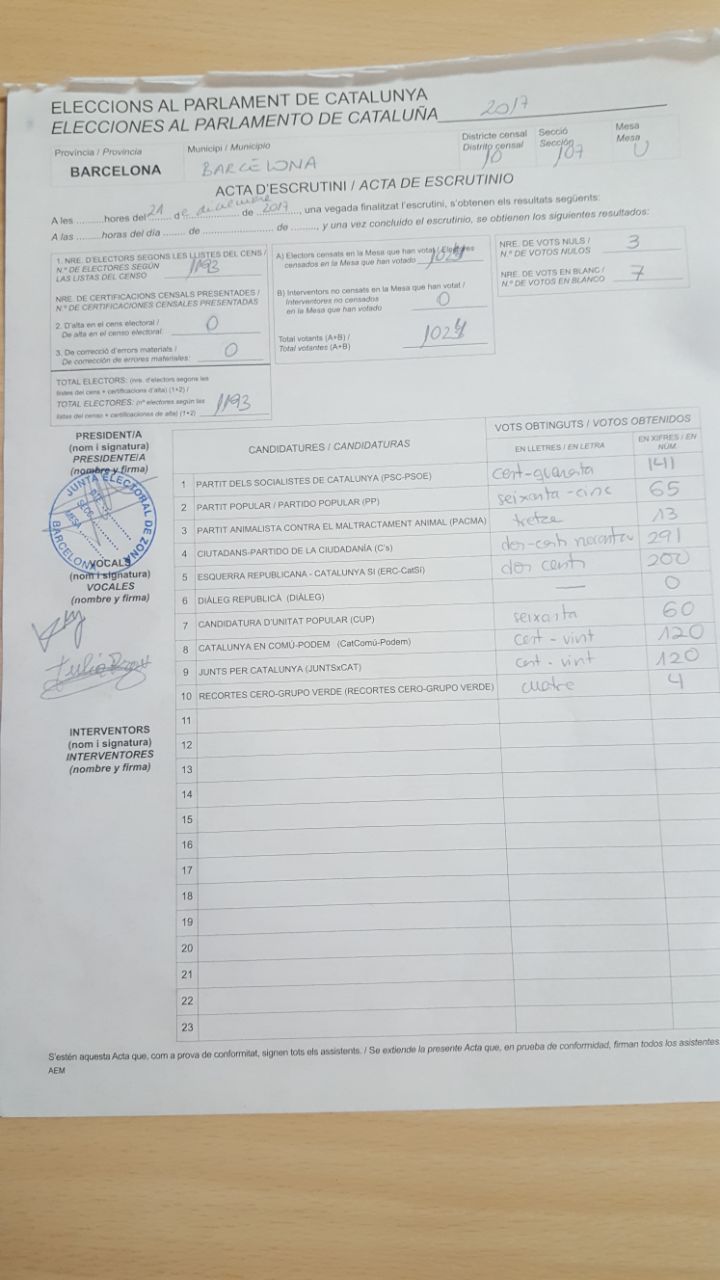 ELECCIONS AL PARLAMENT DE CATALUNYA
ELECCIONES AL PARLAMENTO DE CATALUÑA 2017
Província / Provincia
BARCELONA
Municipi / Municipio
BARCELONA
Districte censal
Distrito censal
10
Secció
Sección
107
Mesa
Mesa
U
ACTA D'ESCRUTINI / ACTA DE ESCRUTINIO
A les ..........hores del 21 de diciembre de 2017, una vegada finalitzat l'escrutini, s'obtenen els resultats següents:
A las .........horas del día ........ de ............................. de ........., y una vez concluido el escrutinio, se obtienen los siguientes resultados:
1. NRE. D'ELECTORS SEGONS LES LLISTES DEL CENS /
N.º DE ELECTORES SEGÚN
LAS LISTAS DEL CENSO
1193
NRE. DE CERTIFICACIONS CENSALS PRESENTADES /
N.º DE CERTIFICACIONES CENSALES PRESENTADAS
2. D'alta en el cens electoral /
De alta en el censo electoral:
0
3. De correcció d'errors materials /
De corrección de errores materiales:
0
TOTAL ELECTORS: (nre. d'electors segons les
llistes del cens + certificacions d'alta) (1+2) /
TOTAL ELECTORES: (nº electores según las
listas del censo + certificaciones de alta) (1+2)
1193
A) Electors censats en la Mesa que han votat / Electores
censados en la Mesa que han votado
1024
B) Interventors no censats en la Mesa que han votat /
Interventores no censados
en la Mesa que han votado
0
Total votants (A+B) /
Total votantes (A+B)
1024
NRE. DE VOTS NULS /
N.º DE VOTOS NULOS
3
NRE. DE VOTS EN BLANC /
N.º DE VOTOS EN BLANCO
7
PRESIDENT/A
(nom i signatura)
PRESIDENTE/A
(nombre y firma)
JUNTA ELECTORAL DE ZONA
BARCELONA
SECC.
MESA
VOCALS
(nom i signatura)
VOCALES
(nombre y firma)
INTERVENTORS
(nom i signatura)
INTERVENTORES
(nombre y firma)
CANDIDATURES / CANDIDATURAS
VOTS OBTINGUTS / VOTOS OBTENIDOS
EN LLETRES / EN LETRA
EN XIFRES / EN NÚM.
1 PARTIT DELS SOCIALISTES DE CATALUNYA (PSC-PSOE) cent-quaranta 141
2 PARTIT POPULAR / PARTIDO POPULAR (PP) seixanta-cinc 65
3 PARTIT ANIMALISTA CONTRA EL MALTRACTAMENT ANIMAL (PACMA) tretze 13
4 CIUTADANS-PARTIDO DE LA CIUDADANÍA (C's) 291
5 ESQUERRA REPUBLICANA - CATALUNYA SI (ERC-CatSí) dos cents 200
6 DIÀLEG REPUBLICÀ (DIÀLEG) — 0
7 CANDIDATURA D'UNITAT POPULAR (CUP) seixanta 60
8 CATALUNYA EN COMÚ-PODEM (CatComú-Podem) cent-vint 120
9 JUNTS PER CATALUNYA (JUNTSxCAT) cent-vint 120
10 RECORTES CERO-GRUPO VERDE (RECORTES CERO-GRUPO VERDE) cuatre 4
11
12
13
14
15
16
17
18
19
20
21
22
23
S'estén aquesta Acta que, com a prova de conformitat, signen tots els assistents. / Se extiende la presente Acta que, en prueba de conformidad, firman todos los asistentes.
AEM